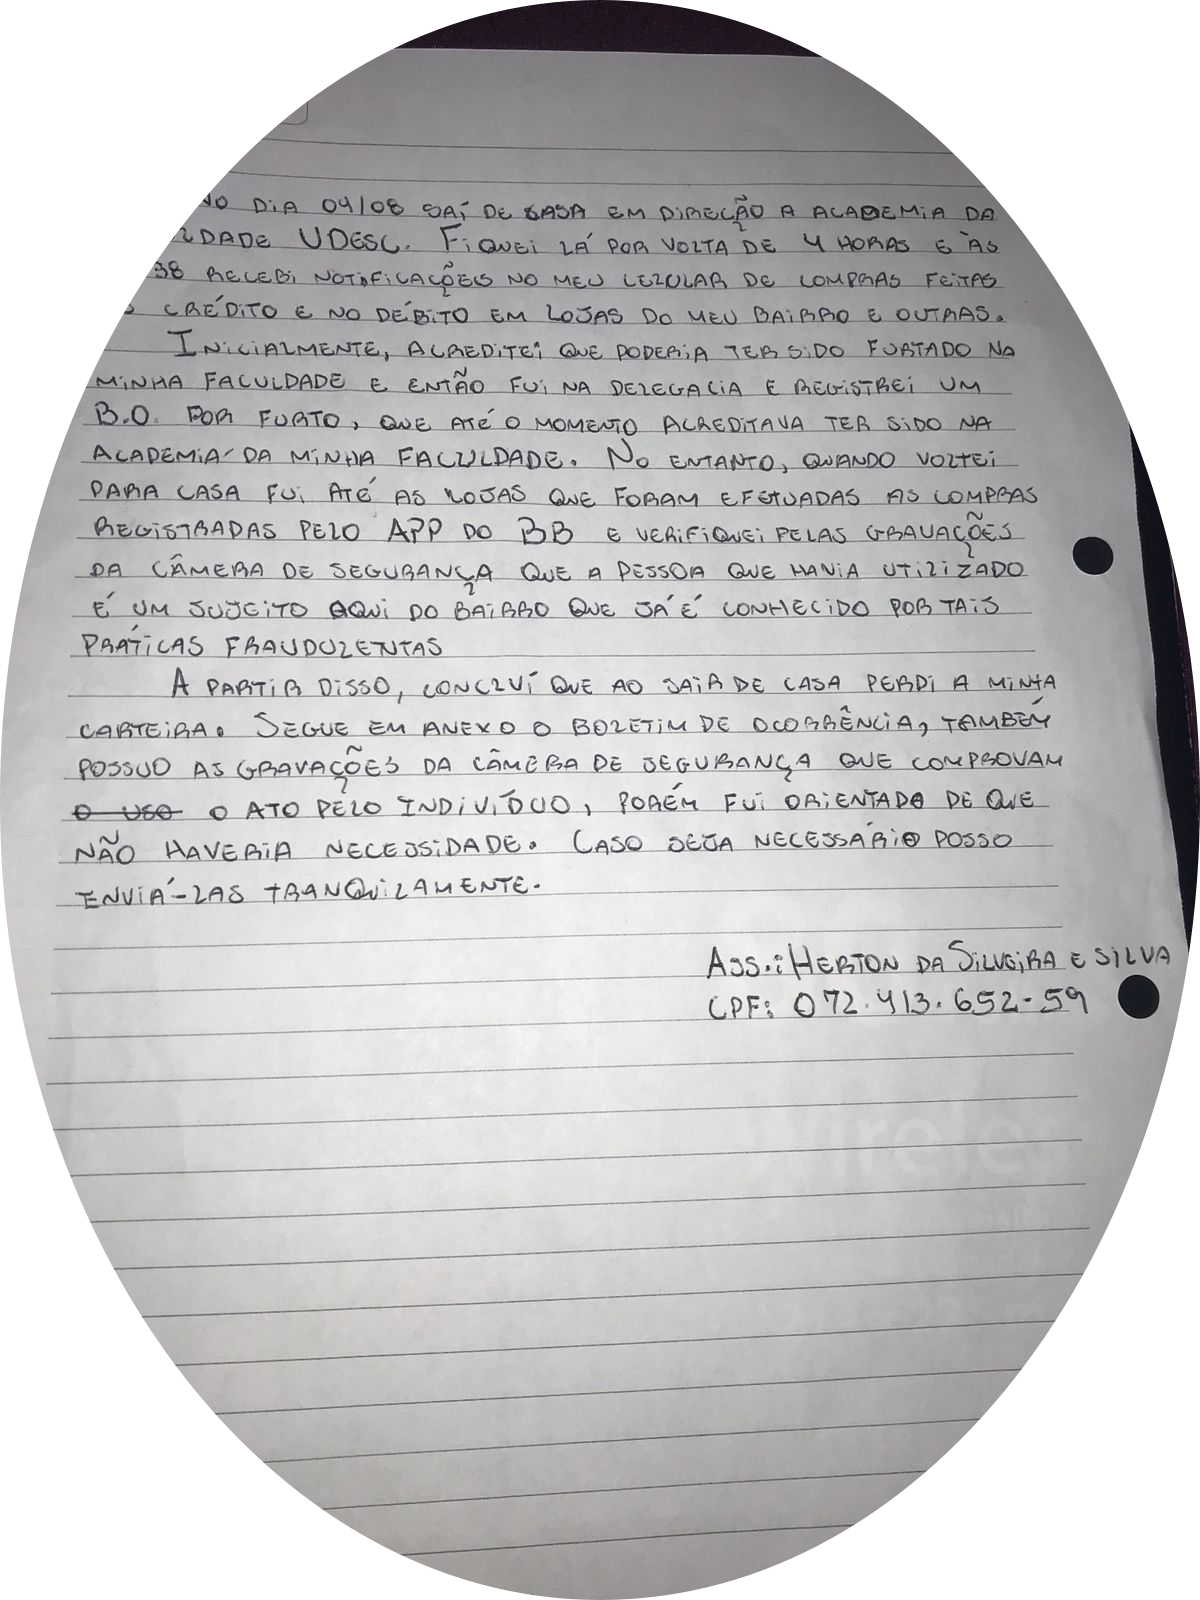 NO DIA 04/08 SAÍ DE CASA EM DIREÇÃO A ACADEMIA DA
LDADE UDESC. FIQUEI LÁ POR VOLTA DE 4 HORAS E ÀS
38 RECEBI NOTIFICAÇÕES NO MEU CELULAR DE COMPRAS FEITAS
CRÉDITO E NO DÉBITO EM LOJAS DO MEU BAIRRO E OUTRAS.
INICIALMENTE, ACREDITEI QUE PODERIA TER SIDO FURTADO NA
MINHA FACULDADE E ENTÃO FUI NA DELEGACIA E REGISTREI UM
B.O. POR FURTO, QUE ATÉ O MOMENTO ACREDITAVA TER SIDO NA
ACADEMIA DA MINHA FACULDADE. NO ENTANTO, QUANDO VOLTEI
PARA CASA FUI ATÉ AS LOJAS QUE FORAM EFETUADAS AS COMPRAS
REGISTRADAS PELO APP DO BB E VERIFIQUEI PELAS GRAVAÇÕES
DA CÂMERA DE SEGURANÇA QUE A PESSOA QUE HAVIA UTILIZADO
É UM SUJEITO AQUI DO BAIRRO QUE JÁ É CONHECIDO POR TAIS
PRÁTICAS FRAUDULENTAS
A PARTIR DISSO, CONCLUÍ QUE AO SAIR DE CASA PERDI A MINHA
CARTEIRA. SEGUE EM ANEXO O BOLETIM DE OCORRÊNCIA, TAMBÉM
POSSUO AS GRAVAÇÕES DA CÂMERA DE SEGURANÇA QUE COMPROVAM
O USO O ATO PELO INDIVÍDUO, PORÉM FUI ORIENTADO DE QUE
NÃO HAVERIA NECESSIDADE. CASO SEJA NECESSÁRIO POSSO
ENVIÁ-LAS TRANQUILAMENTE.
ASS.: HERTON DA SILVEIRA E SILVA
CPF: 072.413.652-59